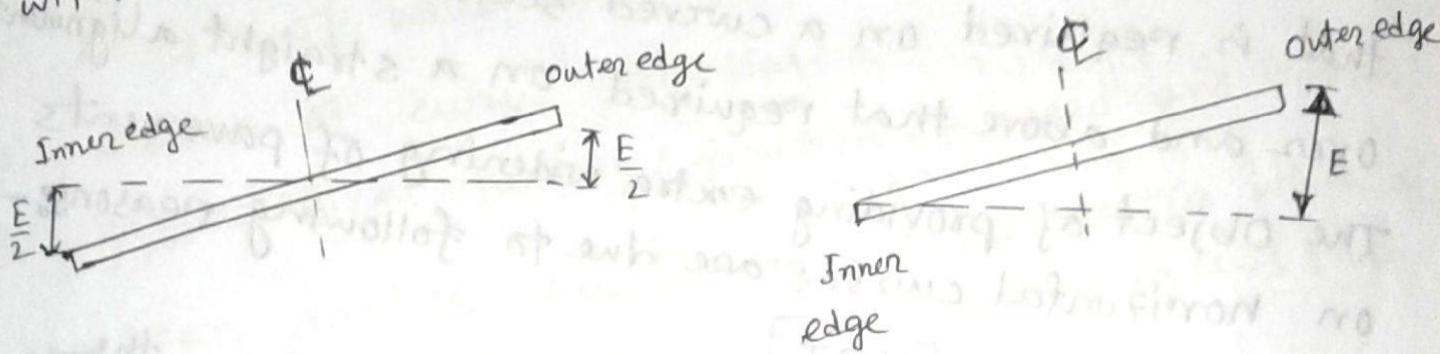 ℄
outer edge
Inner edge
E/2
E/2
℄
outer edge
E
Inner
edge